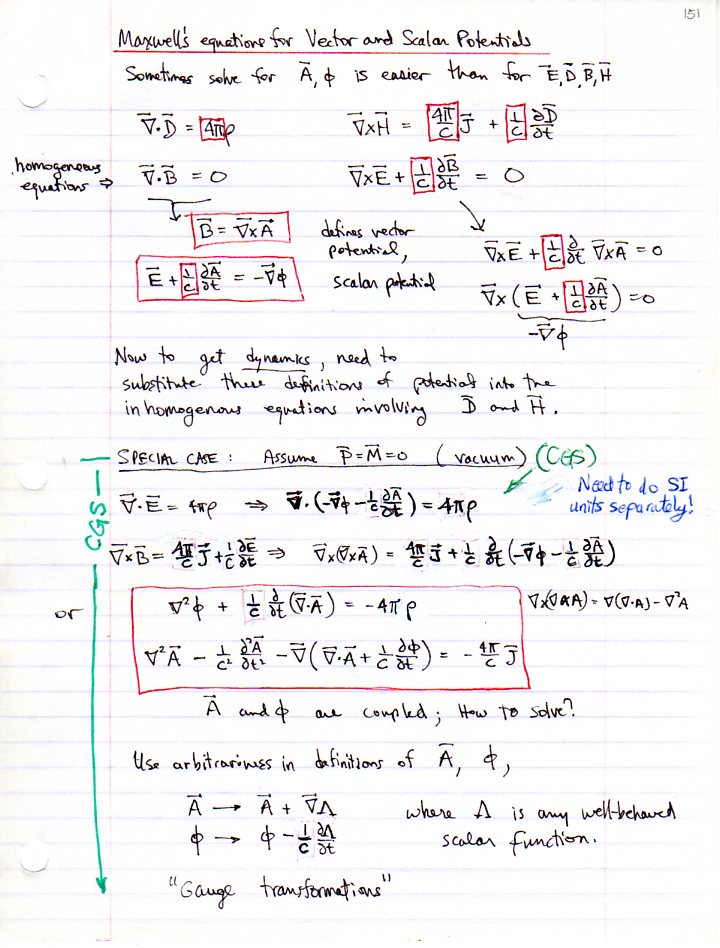 151
Maxwell's equations for Vector and Scalar Potentials
Sometimes solve for A⃗, φ is easier than for E⃗, D⃗, B⃗, H⃗
∇⃗·D⃗ = 4πρ    ∇⃗×H⃗ = 4π/c J⃗ + 1/c ∂D⃗/∂t
homogeneous
equations ⇒ ∇⃗·B⃗ = 0    ∇⃗×E⃗ + 1/c ∂B⃗/∂t = 0
B⃗ = ∇⃗×A⃗    defines vector
potential,
∇⃗×E⃗ + 1/c ∂/∂t ∇⃗×A⃗ = 0
E⃗ + 1/c ∂A⃗/∂t = -∇⃗φ    scalar potential
∇⃗×(E⃗ + 1/c ∂A⃗/∂t) = 0
-∇⃗φ
Now to get dynamics, need to
substitute these definitions of potential into the
inhomogenous equations involving D⃗ and H⃗.
SPECIAL CASE: Assume P⃗=M⃗=0 (vacuum) (CGS)
Need to do SI
units separately!
CGS
∇⃗·E⃗ = 4πρ ⇒ ∇⃗·(-∇⃗φ - 1/c ∂A⃗/∂t) = 4πρ
∇⃗×B⃗ = 4π/c J⃗ + 1/c ∂E⃗/∂t ⇒ ∇⃗×(∇⃗×A⃗) = 4π/c J⃗ + 1/c ∂/∂t (-∇⃗φ - 1/c ∂A⃗/∂t)
or ∇²φ + 1/c ∂/∂t (∇⃗·A⃗) = -4πρ    ∇×(∇×A) = ∇(∇·A) - ∇²A
∇²A⃗ - 1/c² ∂²A⃗/∂t² - ∇⃗(∇⃗·A⃗ + 1/c ∂φ/∂t) = - 4π/c J⃗
A⃗ and φ are coupled; How to solve?
Use arbitrariness in definitions of A⃗, φ,
A⃗ → A⃗ + ∇⃗Λ    where Λ is any well-behaved
φ → φ - 1/c ∂Λ/∂t    scalar function.
"Gauge transformations"